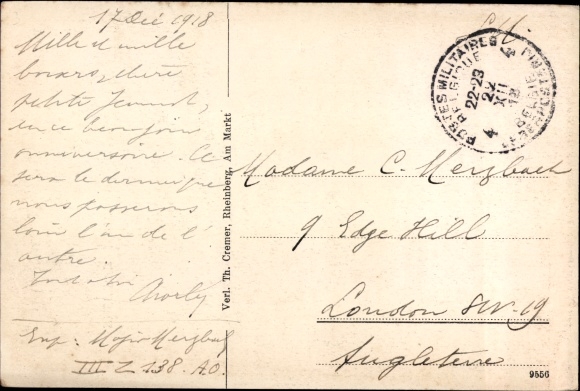 17 Déc 1918
Mille et mille
baisers, chère
petite
en ce beau jour
anniversaire. Ce
sera le dernier que
nous passerons
loin l'un de l'
autre.
Tout à toi
Charley
Exp: Major Merzbach
III Z 138. A.O.
Verl. Th. Cremer, Rheinberg, Am Markt
S.M.
POSTES MILITAIRES
BELGIQUE
22-23
22
XII
18
4
Madame C. Merzbach
9 Edge Hill
London SW-19
Angleterre
9556